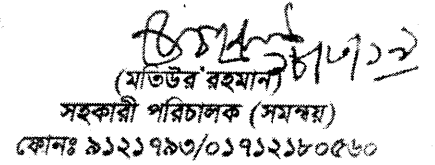 (মতিউর রহমান)
সহকারী পরিচালক (সমন্বয়)
ফোনঃ ৯১২১৭৯৩/০১৭১২১৮০৫৬০